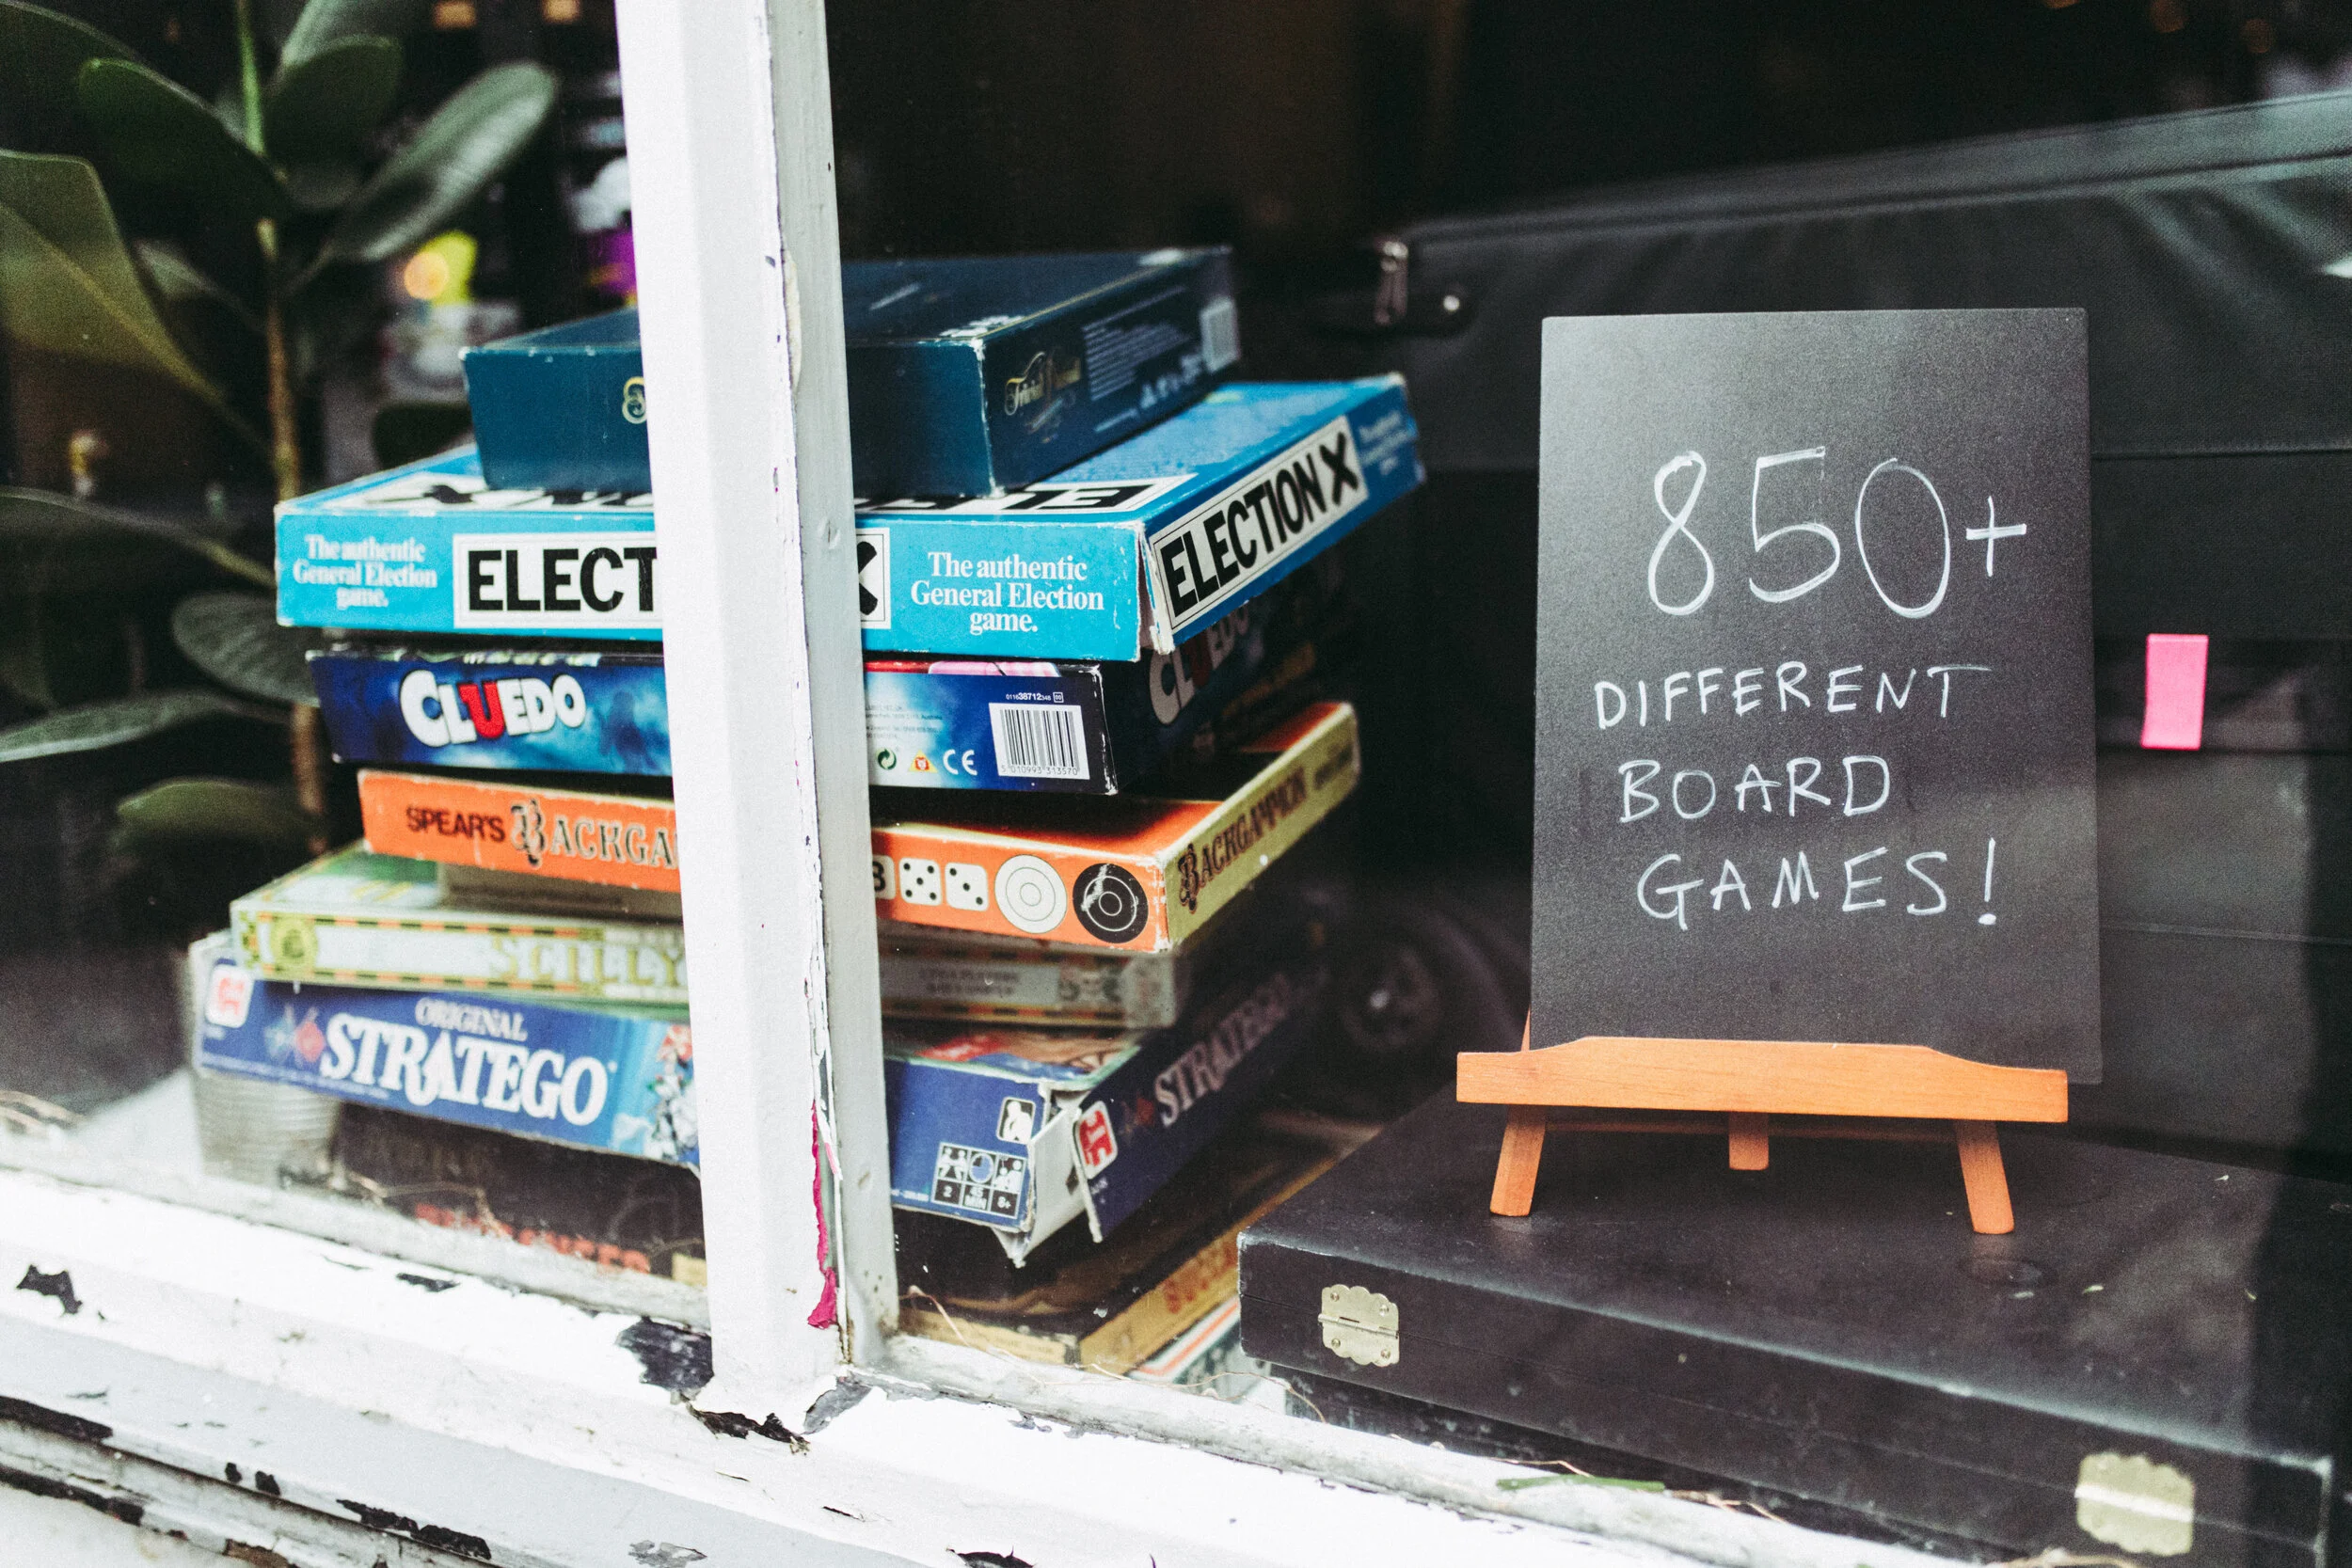 Trivial Pursuit
The authentic
General Election
game.
ELECT
X
The authentic
General Election
game.
ELECTION X
CLUEDO
01163871234800
CE
5 010993 313570
CLUEDO
SPEAR'S BACKGA
BACKGAMMON
ORIGINAL
STRATEGO
2
45
MIN
8+
STRATEGO
850+
DIFFERENT
BOARD
GAMES!